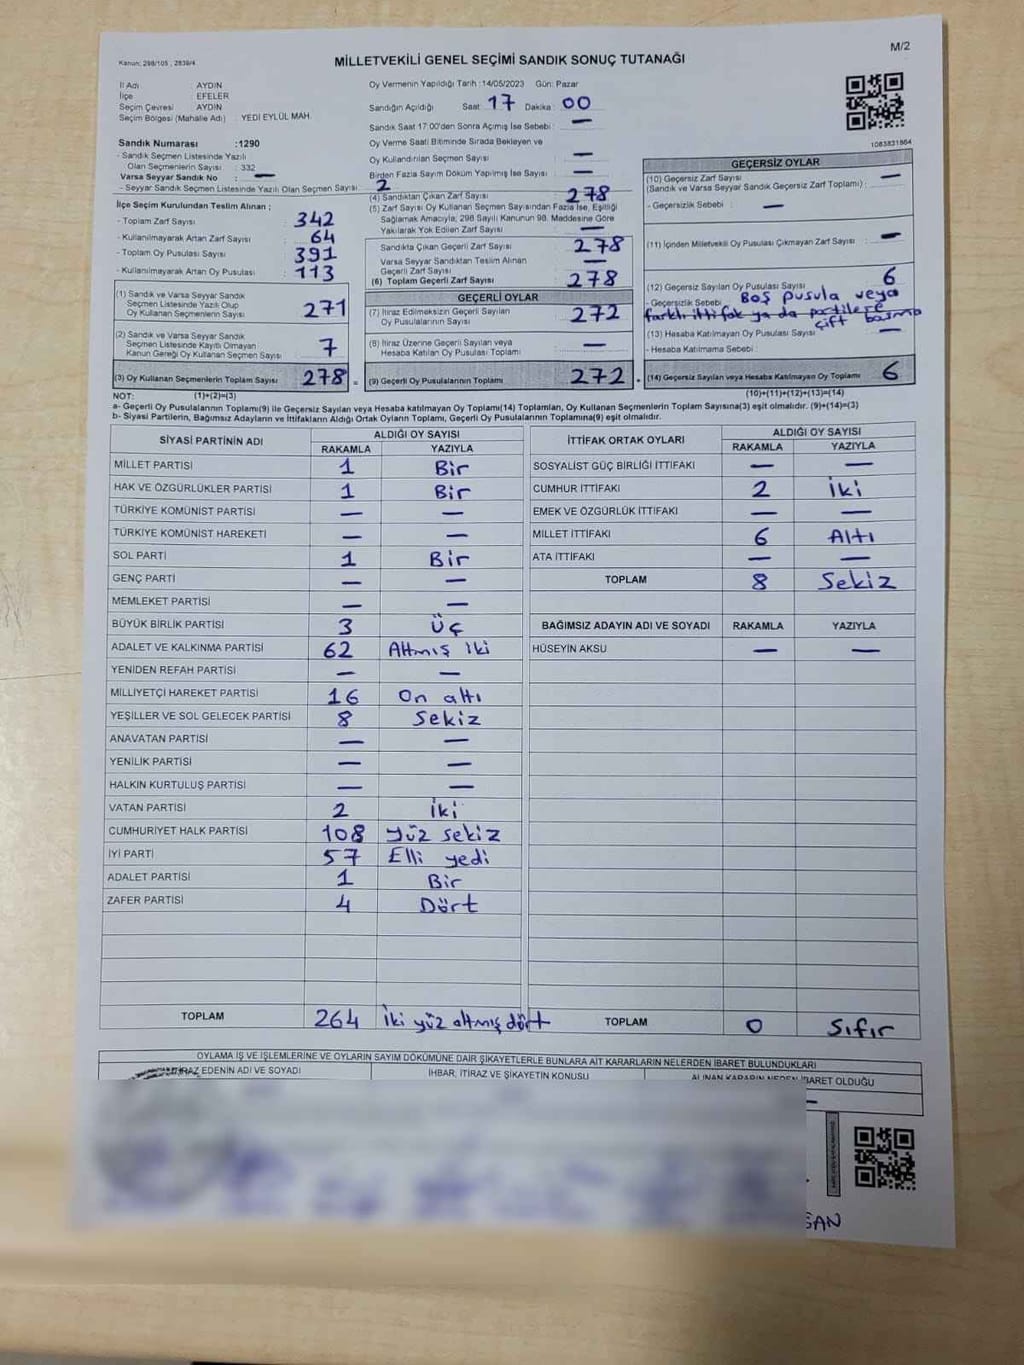 M/2
Kanun: 298/105 , 2839/4
MİLLETVEKİLİ GENEL SEÇİMİ SANDIK SONUÇ TUTANAĞI
İl Adı : AYDIN
İlçe : EFELER
Seçim Çevresi : AYDIN
Seçim Bölgesi (Mahalle Adı) : YEDİ EYLÜL MAH.
Sandık Numarası :1290
- Sandık Seçmen Listesinde Yazılı
Olan Seçmenlerin Sayısı : 332
Varsa Seyyar Sandık No : —
- Seyyar Sandık Seçmen Listesinde Yazılı Olan Seçmen Sayısı : 2
İlçe Seçim Kurulundan Teslim Alınan ;
- Toplam Zarf Sayısı : 342
- Kullanılmayarak Artan Zarf Sayısı : 64
- Toplam Oy Pusulası Sayısı : 391
- Kullanılmayarak Artan Oy Pusulası : 113
(1) Sandık ve Varsa Seyyar Sandık
Seçmen Listesinde Yazılı Olup
Oy Kullanan Seçmen Sayısı : 271
(2) Sandık ve Varsa Seyyar Sandık
Seçmen Listesinde Kaydı Olmayan
Kanun Gereği Oy Kullanan Seçmen Sayısı : 7
(3) Oy Kullanan Seçmenlerin Toplam Sayısı : 278
Oy Vermenin Yapıldığı Tarih :14/05/2023 Gün: Pazar
Sandığın Açıldığı Saat : 17 Dakika : 00
Sandık Saat 17:00'den Sonra Açmış İse Sebebi : —
Oy Verme Saati Bitiminde Sırada Bekleyen ve
Oy Kullandırılan Seçmen Sayısı : —
Birden Fazla Sayım Döküm Yapılmış İse Sayısı : —
(4) Sandıktan Çıkan Zarf Sayısı : 278
(5) Zarf Sayısı Oy Kullanan Seçmen Sayısından Fazla İse, Eşitliği
Sağlamak Amacıyla; 298 Sayılı Kanunun 98. Maddesine Göre
Yakılarak Yok Edilen Zarf Sayısı : —
Sandıkta Çıkan Geçerli Zarf Sayısı : 278
Varsa Seyyar Sandıktan Teslim Alınan
Geçerli Zarf Sayısı : —
(6) Toplam Geçerli Zarf Sayısı : 278
GEÇERLİ OYLAR
(7) İtiraz Edilmeksizin Geçerli Sayılan
Oy Pusulalarının Sayısı : 272
(8) İtiraz Üzerine Geçerli Sayılan veya
Hesaba Katılan Oy Pusulası Toplamı : —
= (9) Geçerli Oy Pusulalarının Toplamı : 272
1083831864
GEÇERSİZ OYLAR
(10) Geçersiz Zarf Sayısı
(Sandık ve Varsa Seyyar Sandık Geçersiz Zarf Toplamı) : —
- Geçersizlik Sebebi : —
(11) İçinden Milletvekili Oy Pusulası Çıkmayan Zarf Sayısı : —
(12) Geçersiz Sayılan Oy Pusulası Sayısı : 6
- Geçersizlik Sebebi : Boş pusula veya
farklı ittifak ya da partilere
çift basma
(13) Hesaba Katılmayan Oy Pusulası Sayısı : —
- Hesaba Katılmama Sebebi :
(14) Geçersiz Sayılan veya Hesaba Katılmayan Oy Toplamı : 6
NOT: (1)+(2)=(3) (10)+(11)+(12)+(13)=(14)
a- Geçerli Oy Pusulalarının Toplamı(9) ile Geçersiz Sayılan veya Hesaba katılmayan Oy Toplamı(14) Toplamları, Oy Kullanan Seçmenlerin Toplam Sayısına(3) eşit olmalıdır. (9)+(14)=(3)
b- Siyasi Partilerin, Bağımsız Adayların ve İttifakların Aldığı Ortak Oyların Toplamı, Geçerli Oy Pusulalarının Toplamına(9) eşit olmalıdır.
SİYASİ PARTİNİN ADI ALDIĞI OY SAYISI
RAKAMLA YAZIYLA
MİLLET PARTİSİ 1 Bir
HAK VE ÖZGÜRLÜKLER PARTİSİ 1 Bir
TÜRKİYE KOMÜNİST PARTİSİ — —
TÜRKİYE KOMÜNİST HAREKETİ — —
SOL PARTİ 1 Bir
GENÇ PARTİ — —
MEMLEKET PARTİSİ — —
BÜYÜK BİRLİK PARTİSİ 3 Üç
ADALET VE KALKINMA PARTİSİ 62 Altmış iki
YENİDEN REFAH PARTİSİ — —
MİLLİYETÇİ HAREKET PARTİSİ 16 On altı
YEŞİLLER VE SOL GELECEK PARTİSİ 8 Sekiz
ANAVATAN PARTİSİ — —
YENİLİK PARTİSİ — —
HALKIN KURTULUŞ PARTİSİ — —
VATAN PARTİSİ 2 İki
CUMHURİYET HALK PARTİSİ 108 Yüz sekiz
İYİ PARTİ 57 Elli yedi
ADALET PARTİSİ 1 Bir
ZAFER PARTİSİ 4 Dört
TOPLAM 264 İki yüz altmış dört
İTTİFAK ORTAK OYLARI ALDIĞI OY SAYISI
RAKAMLA YAZIYLA
SOSYALİST GÜÇ BİRLİĞİ İTTİFAKI — —
CUMHUR İTTİFAKI 2 İki
EMEK VE ÖZGÜRLÜK İTTİFAKI — —
MİLLET İTTİFAKI 6 Altı
ATA İTTİFAKI — —
TOPLAM 8 Sekiz
BAĞIMSIZ ADAYIN ADI VE SOYADI RAKAMLA YAZIYLA
HÜSEYİN AKSU — —
TOPLAM 0 Sıfır
OYLAMA İŞ VE İŞLEMLERİNE VE OYLARIN SAYIM DÖKÜMÜNE DAİR ŞİKAYETLERLE BUNLARA AİT KARARLARIN NELERDEN İBARET BULUNDUKLARI
EDENİN ADI VE SOYADI İHBAR, İTİRAZ VE ŞİKAYETİN KONUSU ALINAN KARARIN NEDEN İBARET OLDUĞU
—